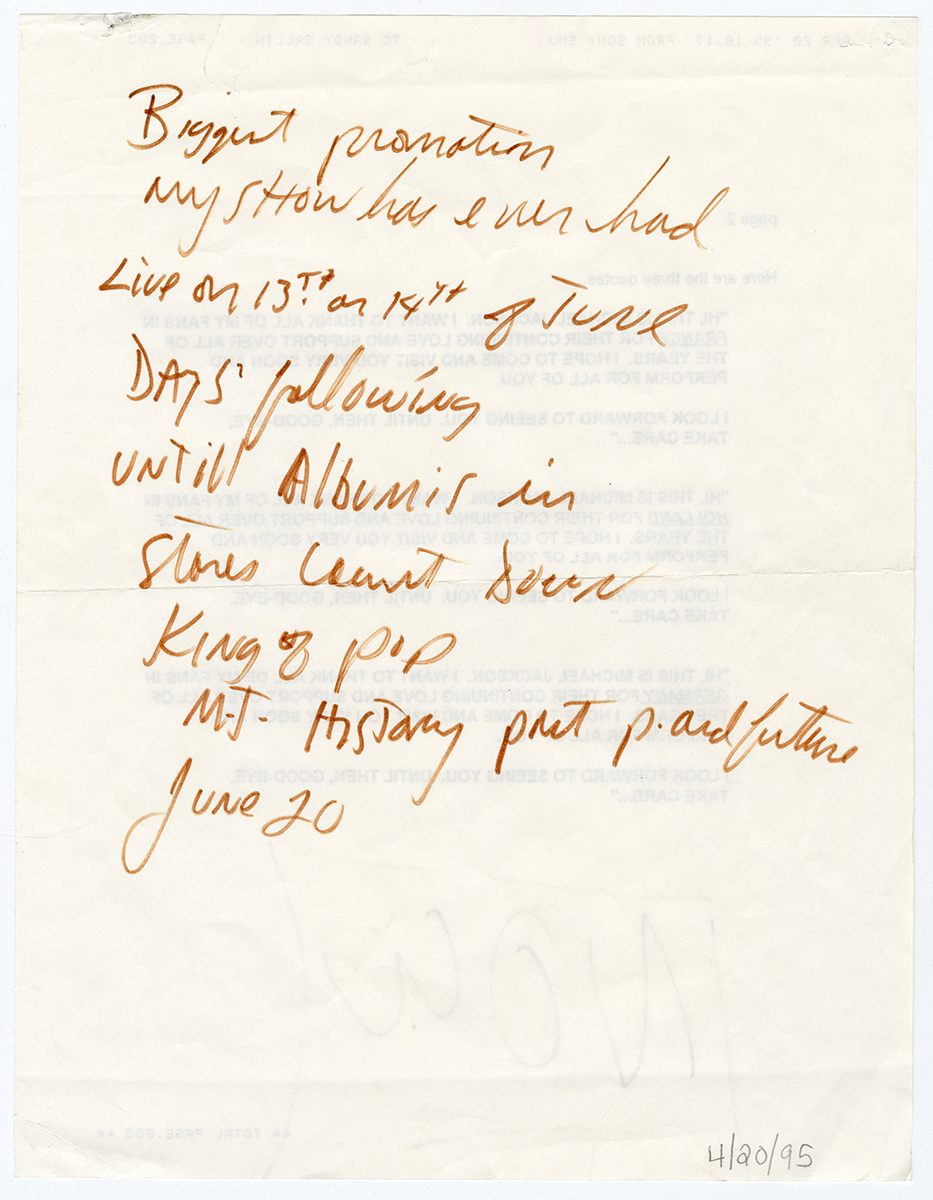 Biggest promotion
my SHow has ever had
Live on 13TH or 14TH of June
DAYS' following
UNTill Album is in
Stores Count Down
King of pop
M-J- HisTory past p and future
June 20
4/20/95